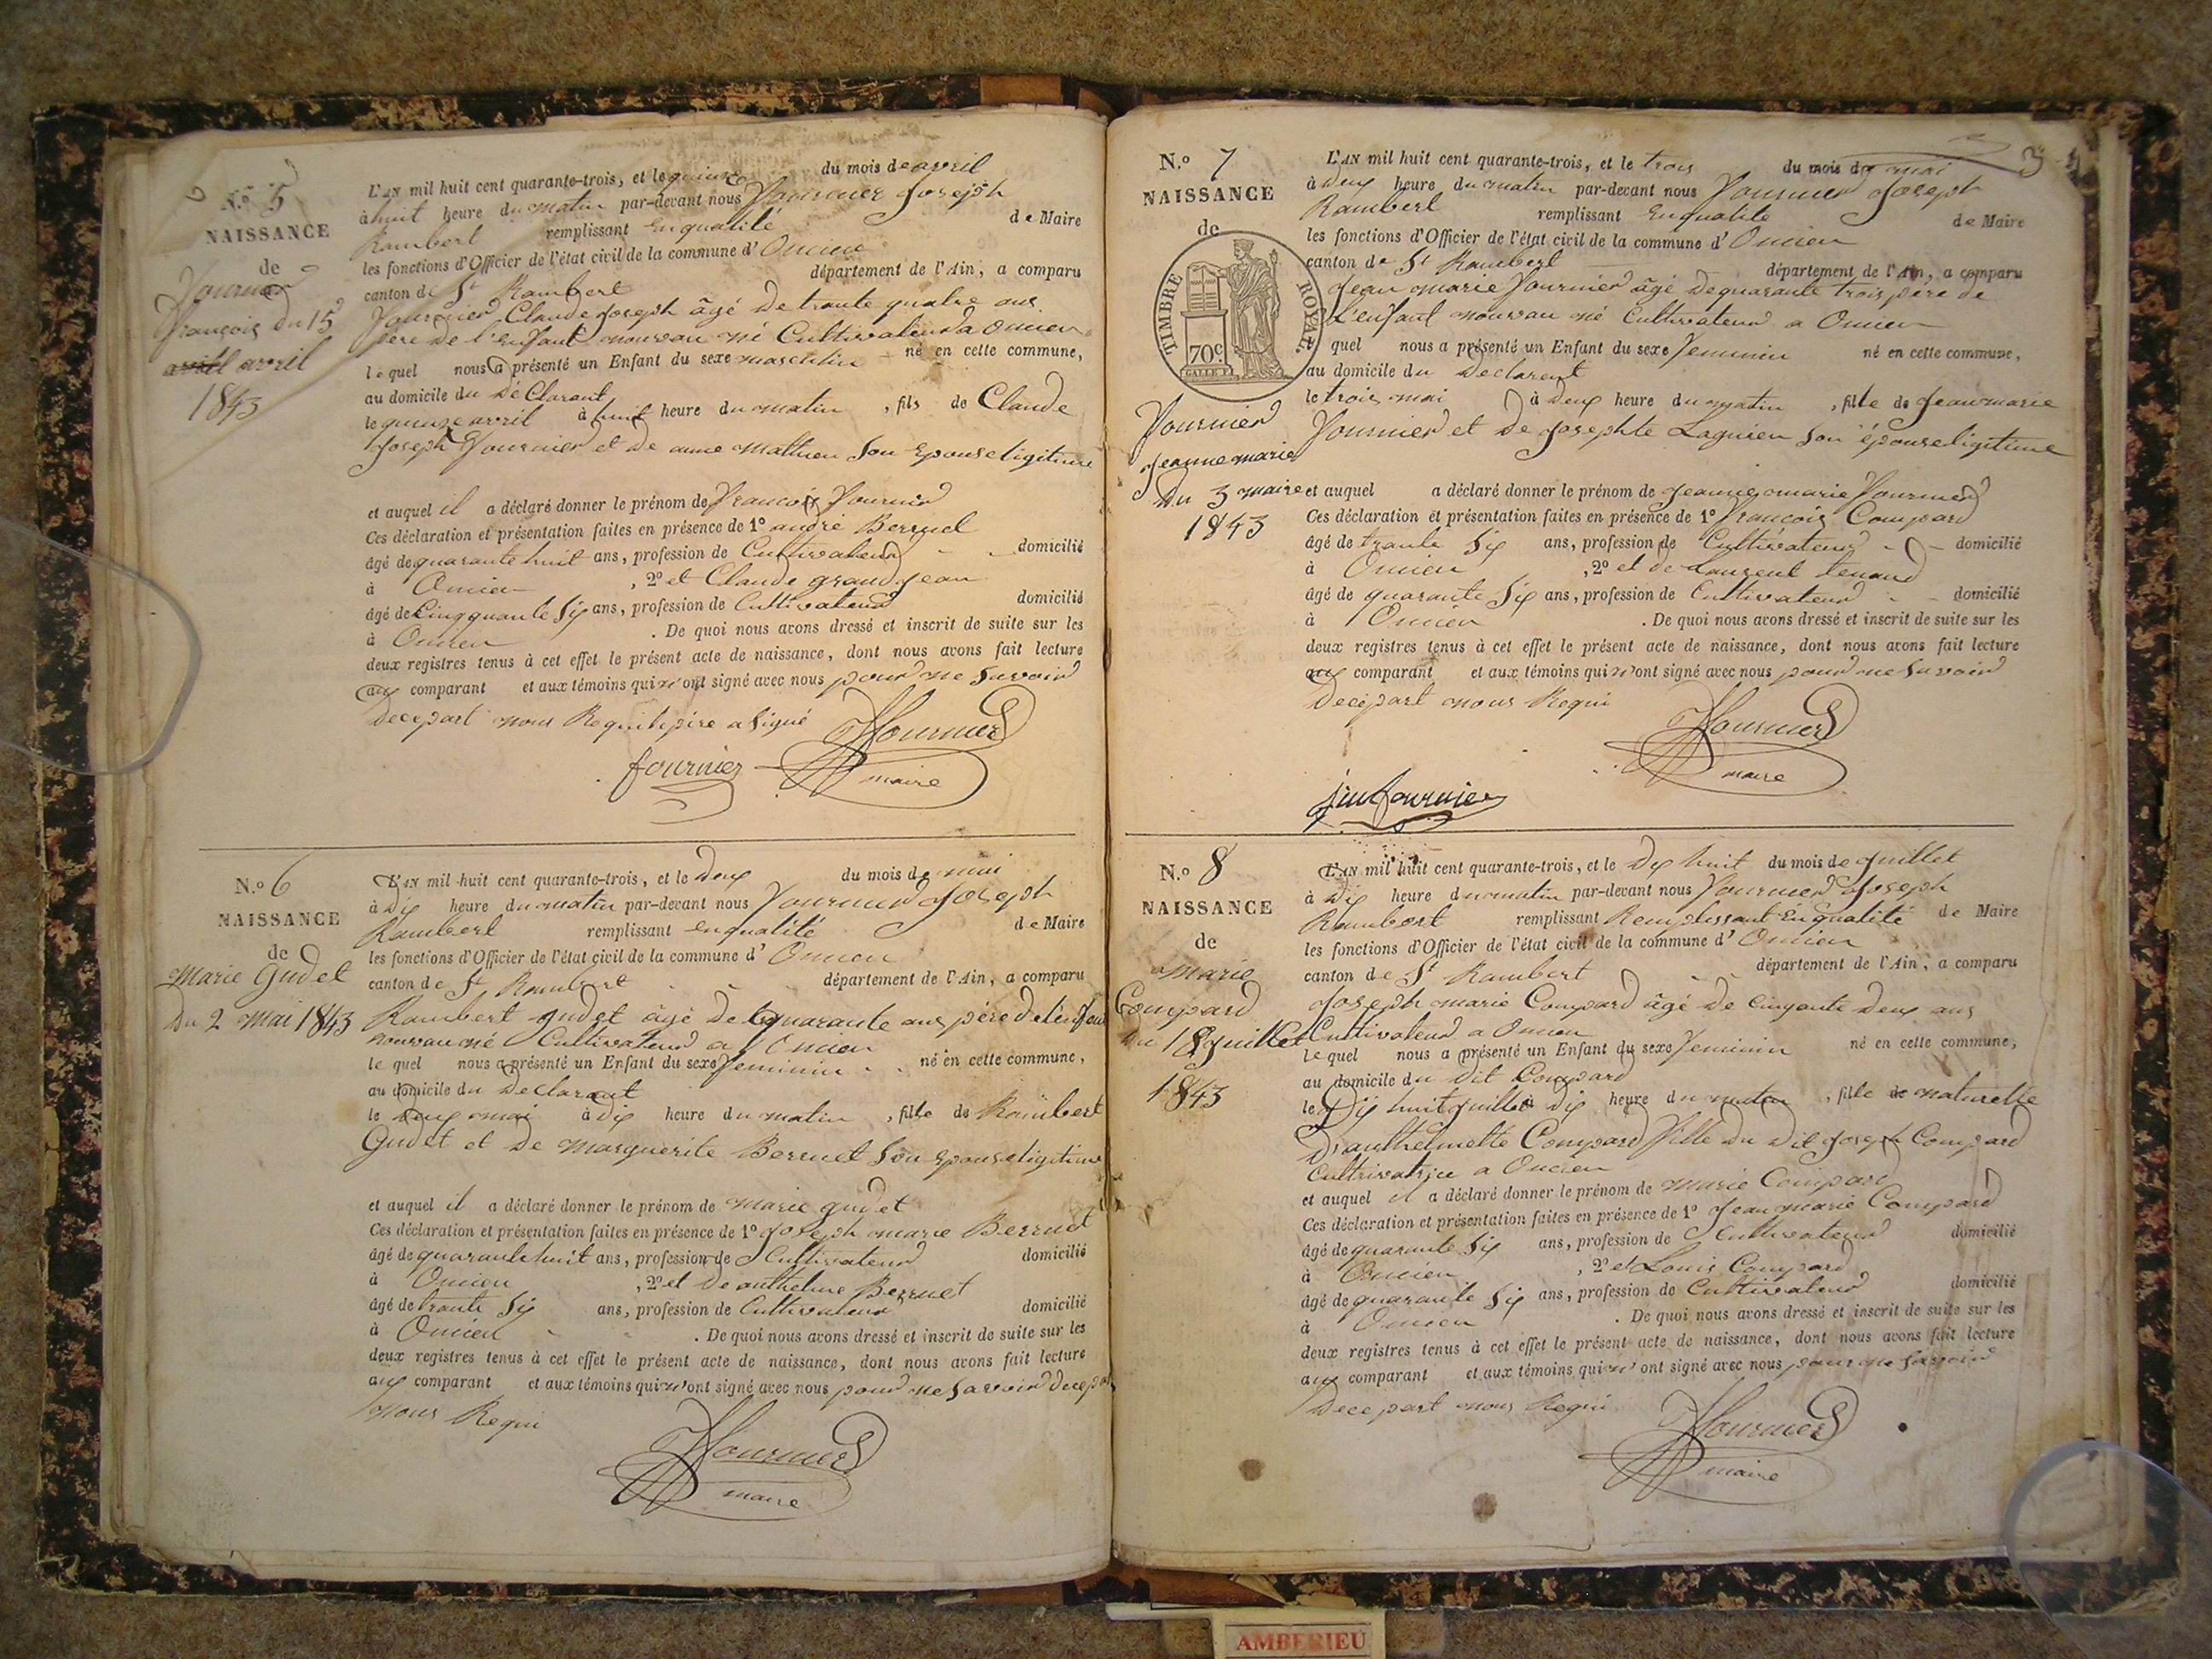 N.º 5
NAISSANCE
de
Fournier
François du 15
avril avril
1843
L'AN mil huit cent quarante-trois, et le quinze du mois de avril
à huit heure du matin par-devant nous Fournier Joseph
Rambert remplissant en qualité de Maire
les fonctions d'Officier de l'état civil de la commune d' Oncieu
canton de St Rambert département de l'Ain, a comparu
Fournier Claude Joseph âgé de trante quatre ans
père de l'enfant nouvau né Cultivateur a Oncieu
le quel nous a présenté un Enfant du sexe masculin né en cette commune,
au domicile du déClarant
le quinze avril à huit heure du matin , fils de Claude
Joseph Fournier et de anne Mathieu Son Epouse ligitime
et auquel il a déclaré donner le prénom de François Fournier
Ces déclaration et présentation faites en présence de 1º andré Berruet
âgé de quarante huit ans, profession de Cultivateur domicilié
à Oncieu , 2º et Claude grand jean
âgé de Cinqquante Six ans, profession de Cultivateur domicilié
à Oncieu . De quoi nous avons dressé et inscrit de suite sur les
deux registres tenus à cet effet le présent acte de naissance, dont nous avons fait lecture
aux comparant et aux témoins qui n'ont signé avec nous pour ne Savoir
decepart nous Requi le père a Signé
fournier Fournier
maire
N.º 6
NAISSANCE
de
Marie Gudet
Du 2 Mai 1843
L'AN mil huit cent quarante-trois, et le deux du mois de mai
à Dix heure du matin par-devant nous Fournier Joseph
Rambert remplissant en qualité de Maire
les fonctions d'Officier de l'état civil de la commune d' Oncieu
canton de St Rambert département de l'Ain, a comparu
Rambert Gudet âgé de quarante ans père de l'enfant
nouvau né Cultivateur a Oncieu
le quel nous a présenté un Enfant du sexe feminin né en cette commune,
au domicile du Declarant
le deux mai à dix heure du matin , fille de Rambert
Gudet et de Marguerite Berruet Son Epouse ligitime
et auquel il a déclaré donner le prénom de Marie gudet
Ces déclaration et présentation faites en présence de 1º Joseph marie Berruet
âgé de quarante huit ans, profession de Cultivateur domicilié
à Oncieu , 2º et De anthelme Berruet
âgé de trante Six ans, profession de Cultivateur domicilié
à Oncieu . De quoi nous avons dressé et inscrit de suite sur les
deux registres tenus à cet effet le présent acte de naissance, dont nous avons fait lecture
aux comparant et aux témoins qui n'ont signé avec nous pour ne Savoir decepart
nous Requi
Fournier
maire
3
N.º 7
NAISSANCE
de
TIMBRE ROYAL.
70c
Fournier
Jeanne marie
Du 3 mai
1843
L'AN mil huit cent quarante-trois, et le trois du mois de mai
à deux heure du matin par-devant nous Fournier Joseph
Rambert remplissant En qualité de Maire
les fonctions d'Officier de l'état civil de la commune d' Oncieu
canton de St Rambert département de l'Ain, a comparu
Jean marie Fournier âgé de quarante trois père de
L'enfant nouvau né Cultivateur a Oncieu
quel nous a présenté un Enfant du sexe feminin né en cette commune,
au domicile du Declarent
le trois mai à deux heure du matin , fille de Jean marie
Fournier et de Josephte Lagnieu Son épouse ligitime
et auquel a déclaré donner le prénom de Jeanne marie Fournier
Ces déclaration et présentation faites en présence de 1º François Compard
âgé de trante Six ans, profession de Cultivateur domicilié
à Oncieu , 2º et de Laurent tenand
âgé de quarante Six ans, profession de Cultivateur domicilié
à Oncieu . De quoi nous avons dressé et inscrit de suite sur les
deux registres tenus à cet effet le présent acte de naissance, dont nous avons fait lecture
aux comparant et aux témoins qui n'ont signé avec nous pour ne Savoir
Decepart nous Requi
Fournier
maire
N.º 8
NAISSANCE
de
Marie
Compard
Du 18 Juillet
1843
L'AN mil huit cent quarante-trois, et le Dix huit du mois de Juillet
à Dix heure du matin par-devant nous Fournier Joseph
Rambert remplissant Remplissant En qualité de Maire
les fonctions d'Officier de l'état civil de la commune d' Oncieu
canton de St Rambert département de l'Ain, a comparu
Joseph marie Compard âgé de Cinqante deux ans
Cultivateur a Oncieu
le quel nous a présenté un Enfant du sexe feminin né en cette commune,
au domicile du dit Compard
le Dix huit Juillet à dix heure du matin , fille de naturelle
D'anthelmette Compard Fille du dit Joseph Compard
Cultrivatrice a Oncieu
et auquel il a déclaré donner le prénom de Marie Compard
Ces déclaration et présentation faites en présence de 1º Jean Marie Compard
âgé de quarante Six ans, profession de Cultivateur domicilié
à Oncieu , 2º et Louis Compard
âgé de quarante Six ans, profession de Cultivateur domicilié
à Oncieu . De quoi nous avons dressé et inscrit de suite sur les
deux registres tenus à cet effet le présent acte de naissance, dont nous avons fait lecture
aux comparant et aux témoins qui n'ont signé avec nous pour ne Savoir
Decepart nous Requi
Fournier
maire
AMBERIEU